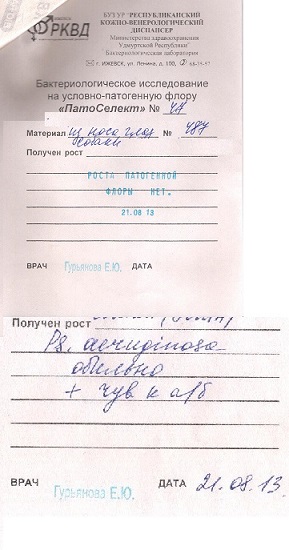 РКВД
БУЗУР "РЕСПУБЛИКАНСКИЙ
КОЖНО-ВЕНЕРОЛОГИЧЕСКИЙ
ДИСПАНСЕР
Министерства здравоохранения
Удмуртской Республики"
Бактериологическая лаборатория
г. ИЖЕВСК, ул. Ленина, д. 100,
Бактериологическое исследование
на условно-патогенную флору
«ПатоСелект» №
Материал из носа глаз № 487
собаки
Получен рост
РОСТА ПАТОГЕННОЙ
ФЛОРЫ НЕТ.
21.08 13
ВРАЧ Гурьянова Е.Ю. ДАТА
Получен рост
Ps. aeruginosa
обильно
+ чув к а/б
ВРАЧ Гурьянова Е.Ю. ДАТА 21.08.13.